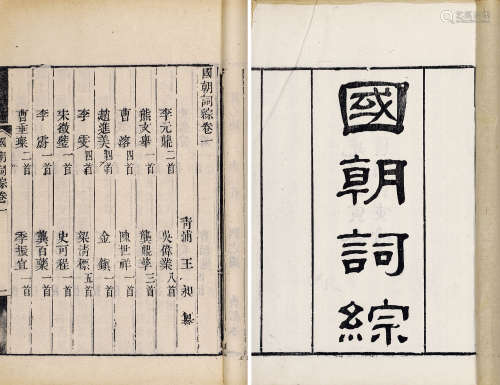 國朝詞綜
國朝詞綜卷一
青浦 王 昶 纂
李元鼎二首 吳偉業八首
熊文舉一首 龔鼎孳三首
曹溶四首 陳世祥一首
趙進美四首 金鎮一首
李雯四首 梁清標五首
宋徵璧一首 史可程一首
李霨一首 龔百藥一首
曹垂璨二首 季振宜一首
國朝詞綜卷一